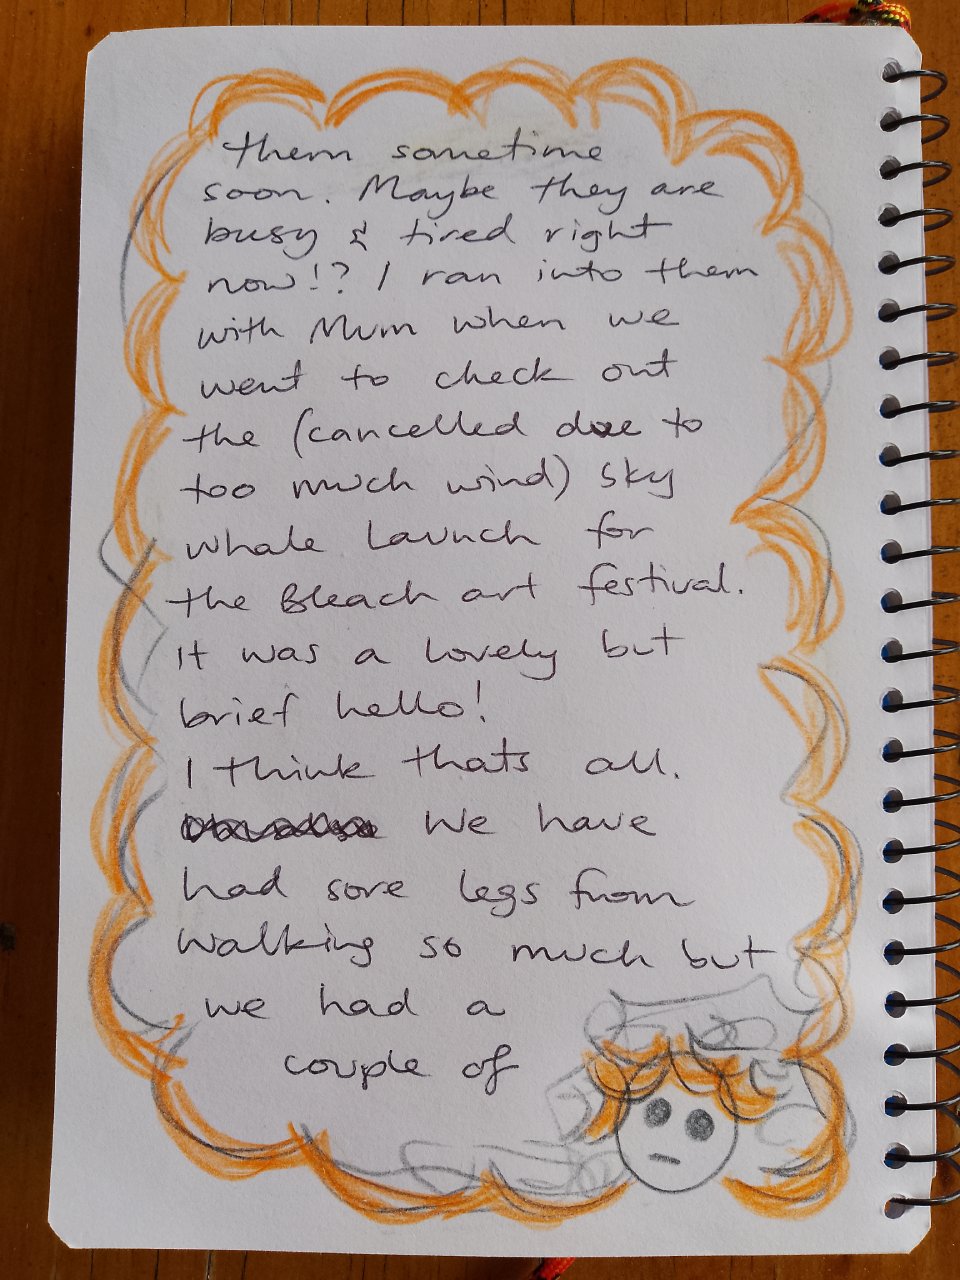 them sometime
soon. Maybe they are
busy & tired right
now!? I ran into them
with Mum when we
went to check out
the (cancelled due to
too much wind) sky
whale launch for
the Bleach art festival.
It was a lovely but
brief hello!
I think thats all.
We have
had sore legs from
walking so much but
we had a
couple of